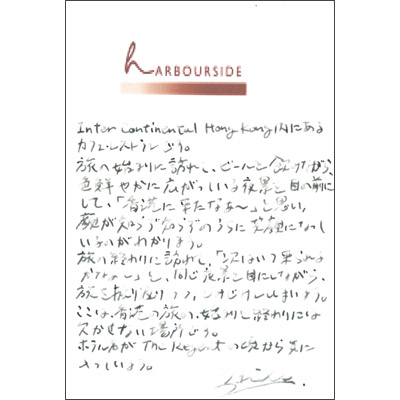 hARBOURSIDE
Inter Continental Hong Kong内にある
カフェ・レストランです。
旅の始まりに訪れ、ビールを飲みながら、
色鮮やかに広がっている夜景を目の前に
して、「香港に来たなあ〜」と思い、
顔が知らず知らずのうちに笑顔になって
いるのがわかります。
旅の終わりに訪れ、「次はいつ来られる
かなぁ〜」と、同じ夜景を目にしながら、
旅を振り返りつつ、しまいます。
ここは、香港の旅の、始まりと終わりには
欠かせない場所です。
ホテル名が The Regent の頃から気に
入っています。